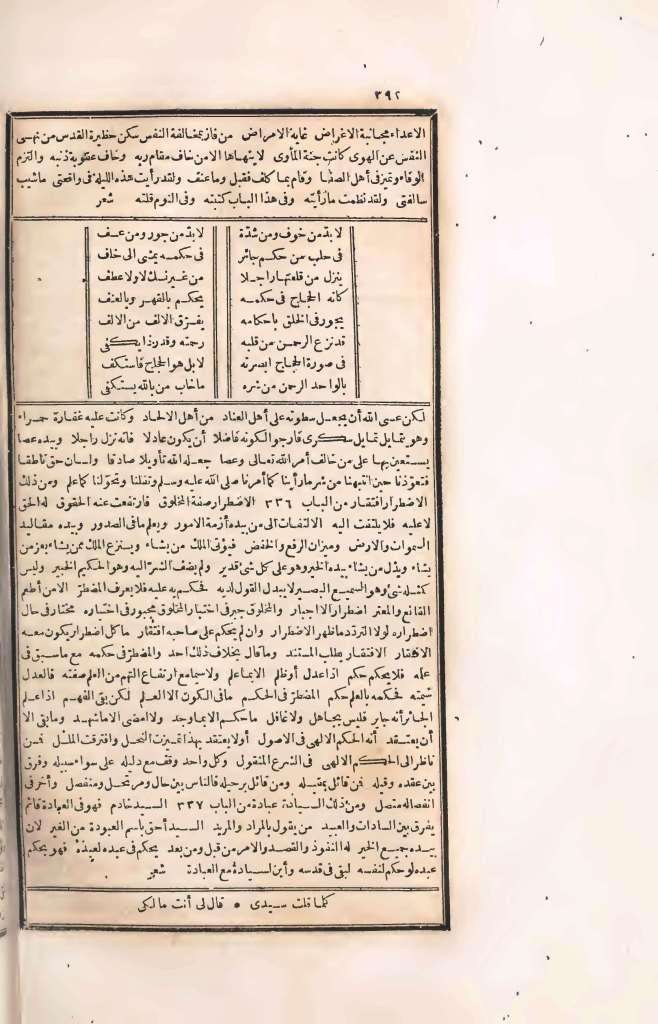 ٣٩٢
الاعداء مجانبة الاغراض غاية الامراض من فاز بمخالفة النفس سكن حظيرة القدس من نهى
النفس عن الهوى كانت جنة المأوى لا ينهاها الا من خاف مقام ربه وخاف عقوبة ذنبه والتزم
الوفاء وتميز فى أهل الصفا وقام بما كلف فقبل وما عنف ولقد رأيت هذه الليلة فى واقعتى ما شيب
سالفتى ولقد نظمت ما رأيته وفى هذا الباب كتبته وفى النوم قلته شعر
لا بد من خوف ومن شدّة لا بد من جور ومن عسف
فى حلب من حكم جائر فى حكمه يمشى الى خلف
ينزل من قلعتها راجلا من غير نسك لا ولا عطف
كانه الحجاج فى حكمه يحكم بالقهر وبالعنف
يجور فى الخلق باحكامه يفرق الالف من الالف
قد نزع الرحمن من قلبه رحمته وقدر ذا يكفى
فى صورة الحجاج ابصرته لا بل هو الحجاج فاستكف
بالواحد الرحمن من شره ما خاب من بالله يستكفى
لكن عسى الله أن يجعل سطوته على أهل العناد من أهل الالحاد وكانت عليه غفارة حمراء
وهو يتمايل تمايل سكرى فارجو لكونه فاضلا أن يكون عادلا فانه نزل راجلا وبيده عصا
يستعين بها على من خالف أمر الله تعالى وعصا جعله الله تأويلا صادقا ولسان حق ناطقا
فتعوّذنا حين انتبهنا من شر ما رأينا كما أمرنا صلى الله عليه وسلم وتفلنا وتحوّلنا كما علم ومن ذلك
الاضطرار افتقار من الباب ٣٣٦ الاضطرار صفة المخلوق فارتفعت عنه الحقوق له الحق
لا عليه فلا يلتفت اليه الالتفات الى من بيده أزمة الامور ويعلم ما فى الصدور وبيده مقاليد
السموات والارض وميزان الرفع والخفض فيؤتى الملك من يشاء وينزع الملك ممن يشاء يعز من
يشاء ويذل من يشاء بيده الخير وهو على كل شئ قدير ولم يضف الشر اليه وهو الحكيم الخبير وليس
كمثله شئ وهو السميع البصير لا يبدل القول لديه فحكم به عليه فلا يعرف المضطرّ الا من أطعم
القانع والمعتر اضطرار الا اجبار والمخلوق جبر فى اختيار المخلوق مجبور فى اختياره مختار فى حال
اضطراره لولا التردّد ما ظهر الاضطرار وان لم يحكم على صاحبه افتقار ما كل اضطرار يكون معه
الافتقار الافتقار يطلب المستند وما قال بخلاف ذلك احد والمضطرّ فى حكمه مع ما سبق فى
علمه فلا يحكم حكم اذا عدل أو ظلم الا بما علم ولا سيما مع ارتفاع التهم من العلم صفته فالعدل
شيمته فحكمه بالعلم حكم المضطرّ فى الحكم ما فى الكون الا العلم لكن بقى الفهم اذا علم
الجائر أنه جاير فليس بجاهل ولا غافل ما حكم الا بما وجد ولا امضى الا ما شهد وما بقى الا
أن يعتقد أنه الحكم الالهى فى الاصول أو لا يعتقد بهذا تميزت النحل وافترقت الملل فمن
ناظر الى الحكم الالهى فى الشرع المنقول وكل واحد وقف مع دليله على سواء سبيله وفرق
بين عقده وقيله فمن قائل بمقيله ومن قائل برحيله فالناس بين حال ومرتحل ومنفصل وآخر فى
انفصاله متصل ومن ذلك السيادة عبادة من الباب ٣٣٧ السيد خادم فهو فى العبادة قائم
يفرق بين السادات والعبيد من يقول بالمراد والمريد السيد أحق باسم العبودة من الغير لان
بيده جميع الخير له النفوذ والقصد والامر من قبل ومن بعد يحكم فى عبده لعبده فهو بحكم
عبده لو حكم لنفسه لبقى فى قدسه وأين السيادة مع العبادة شعر
كلما قلت سيدى * قال لى أنت مالكى